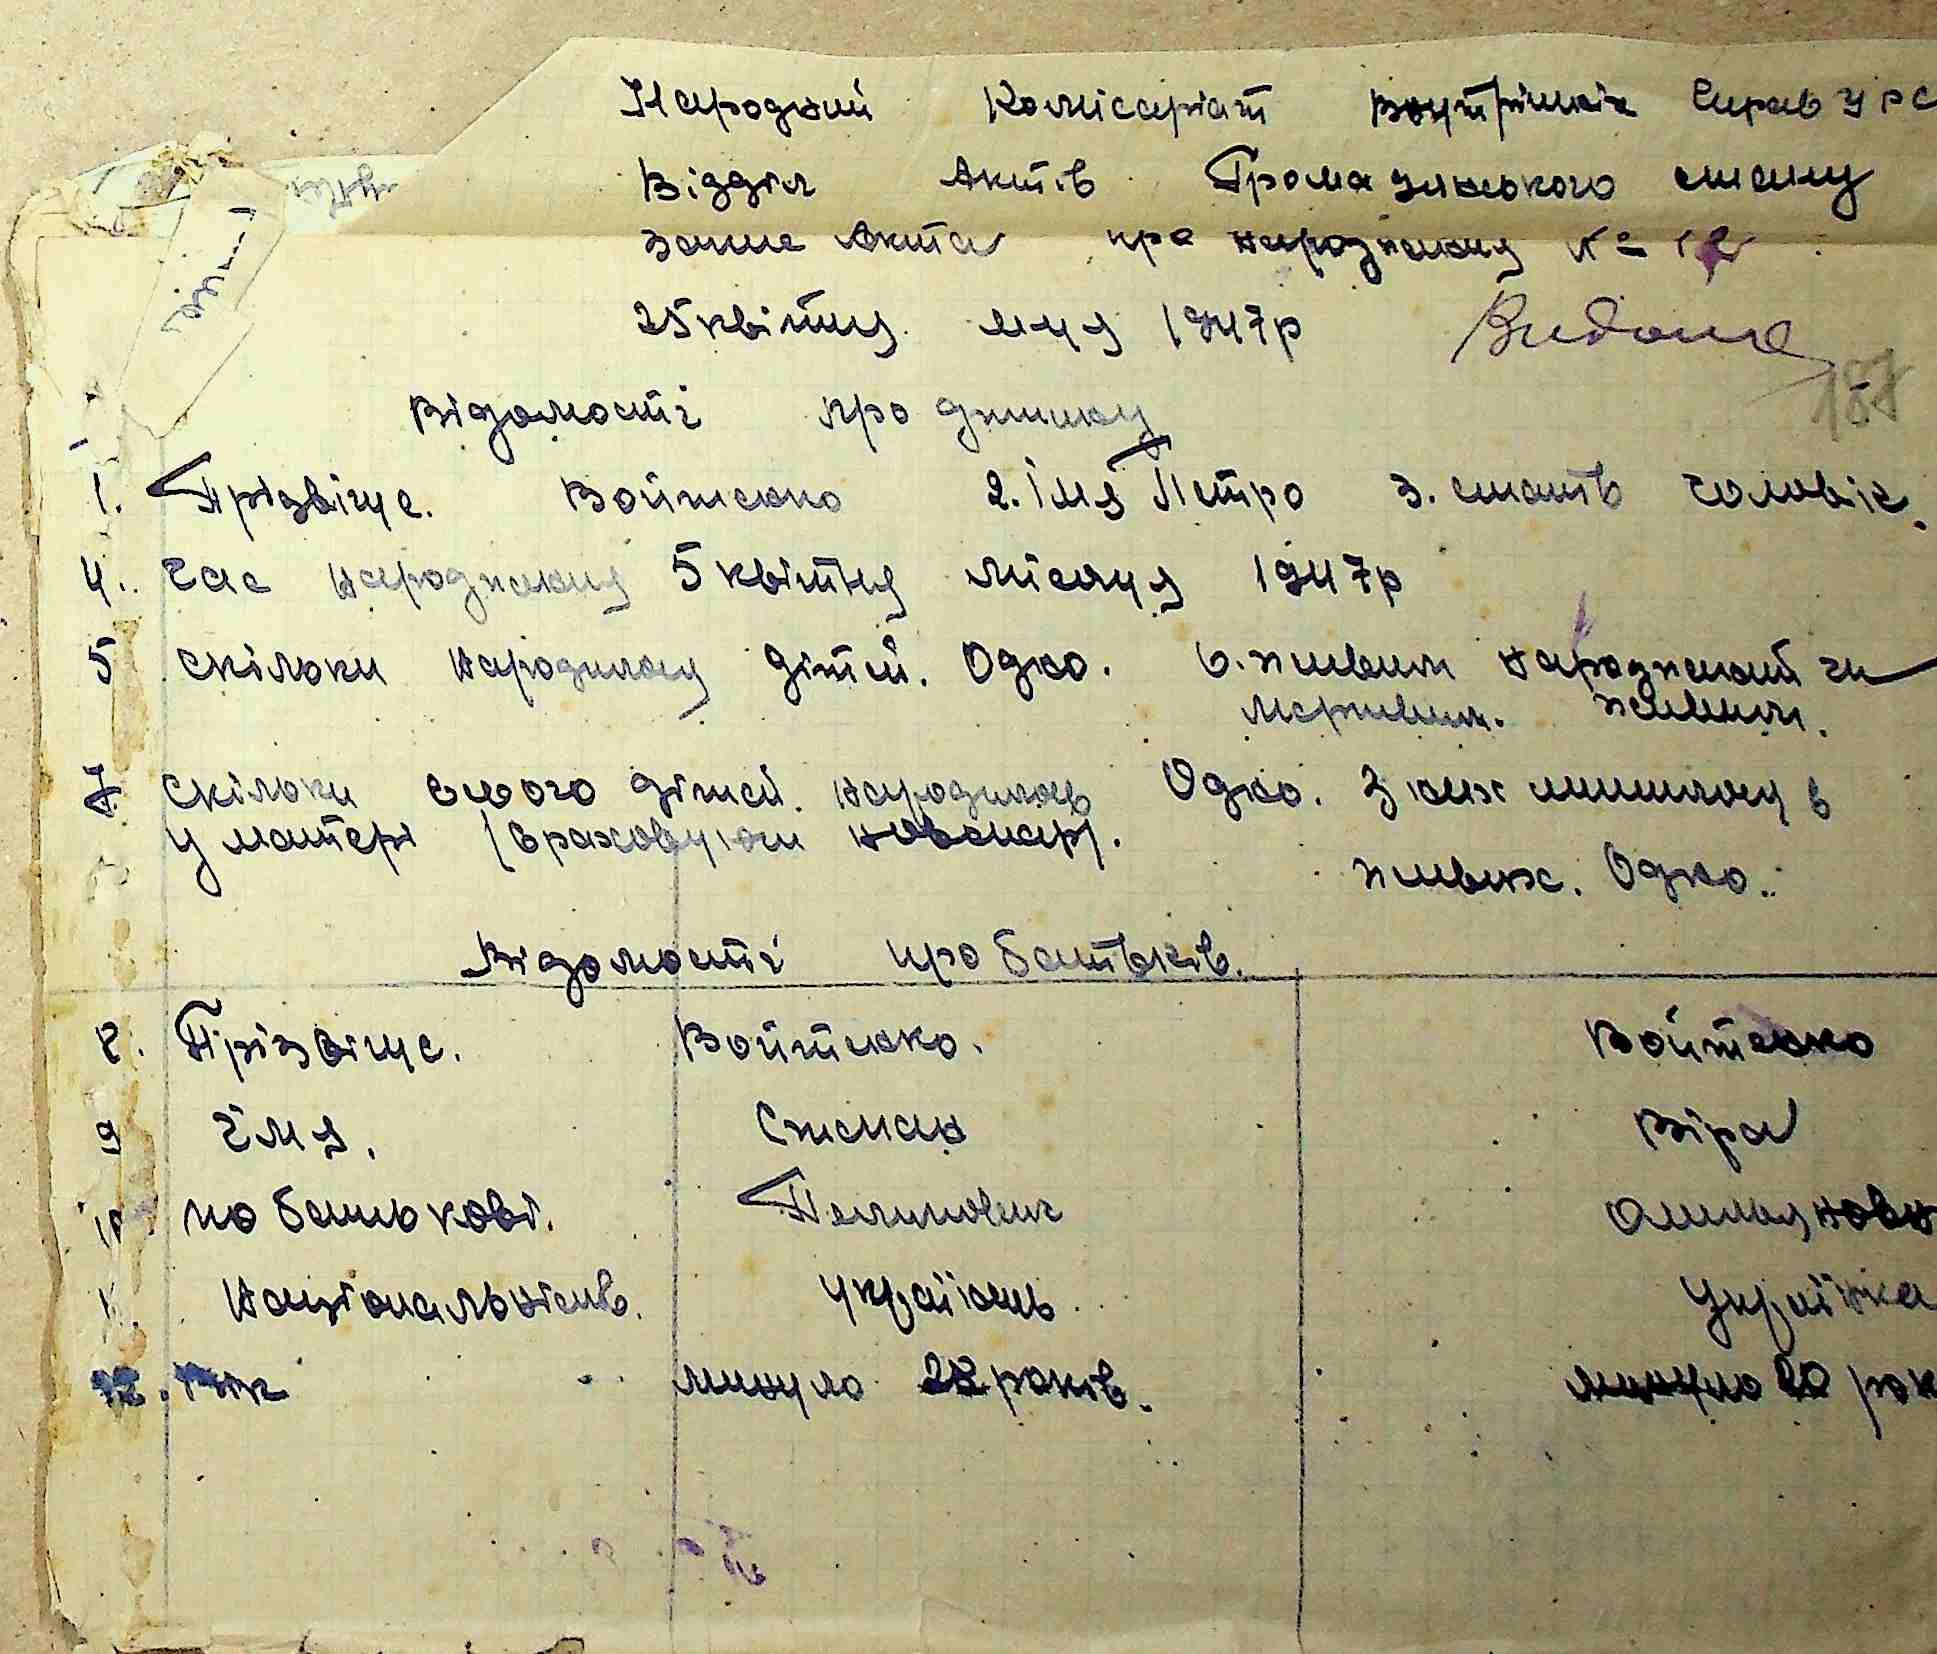 Народний Комісаріат Внутрішніх Справ УРС
Відділ Актів Громадянського стану
запис Акта про народження № 12
25 квітня м-ця 1947р Видано
187
Відомості про дитину
1. Прізвіще. Войтенко 2. Імя Петро 3. стать чоловіч.
4. Час народження 5 квітня місяця 1947р
5 скільки народилось дітей. Одно. 6. живим народжений чи
мертвим. живим.
7 скільки всього дітей. народилось Одно. З них лишилось в
у матері (враховуючи новонар).
живих. Одно.
Відомості про батьків.
8. Прізвіще. Войтенко. Войтенко
9 Імя. Степан Віра
10 по батькові. Омеляновн
11. Національність. українець Українка
12. Вік минуло 28 років. минуло 20 рок